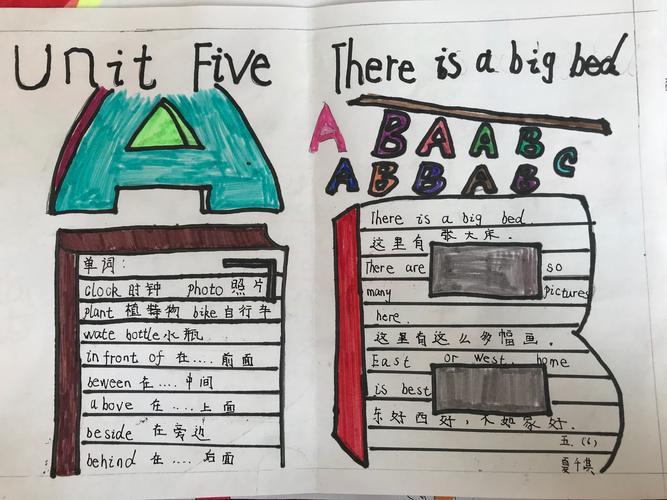 Unit Five
There is a big bed
A
A B A A B C
A B B A B
单词:
clock 时钟 photo 照片
plant 植物 bike 自行车
wate bottle 水瓶
in front of 在.... 前面
beween 在.... 中间
above 在.... 上面
beside 在旁边
behind 在.... 后面
B
There is a big bed.
这里有 张大床.
There are so
many pictures
here.
这里有这么多幅画.
East or west, home
is best
东好西好,不如家好.
五.(6)
夏千琪